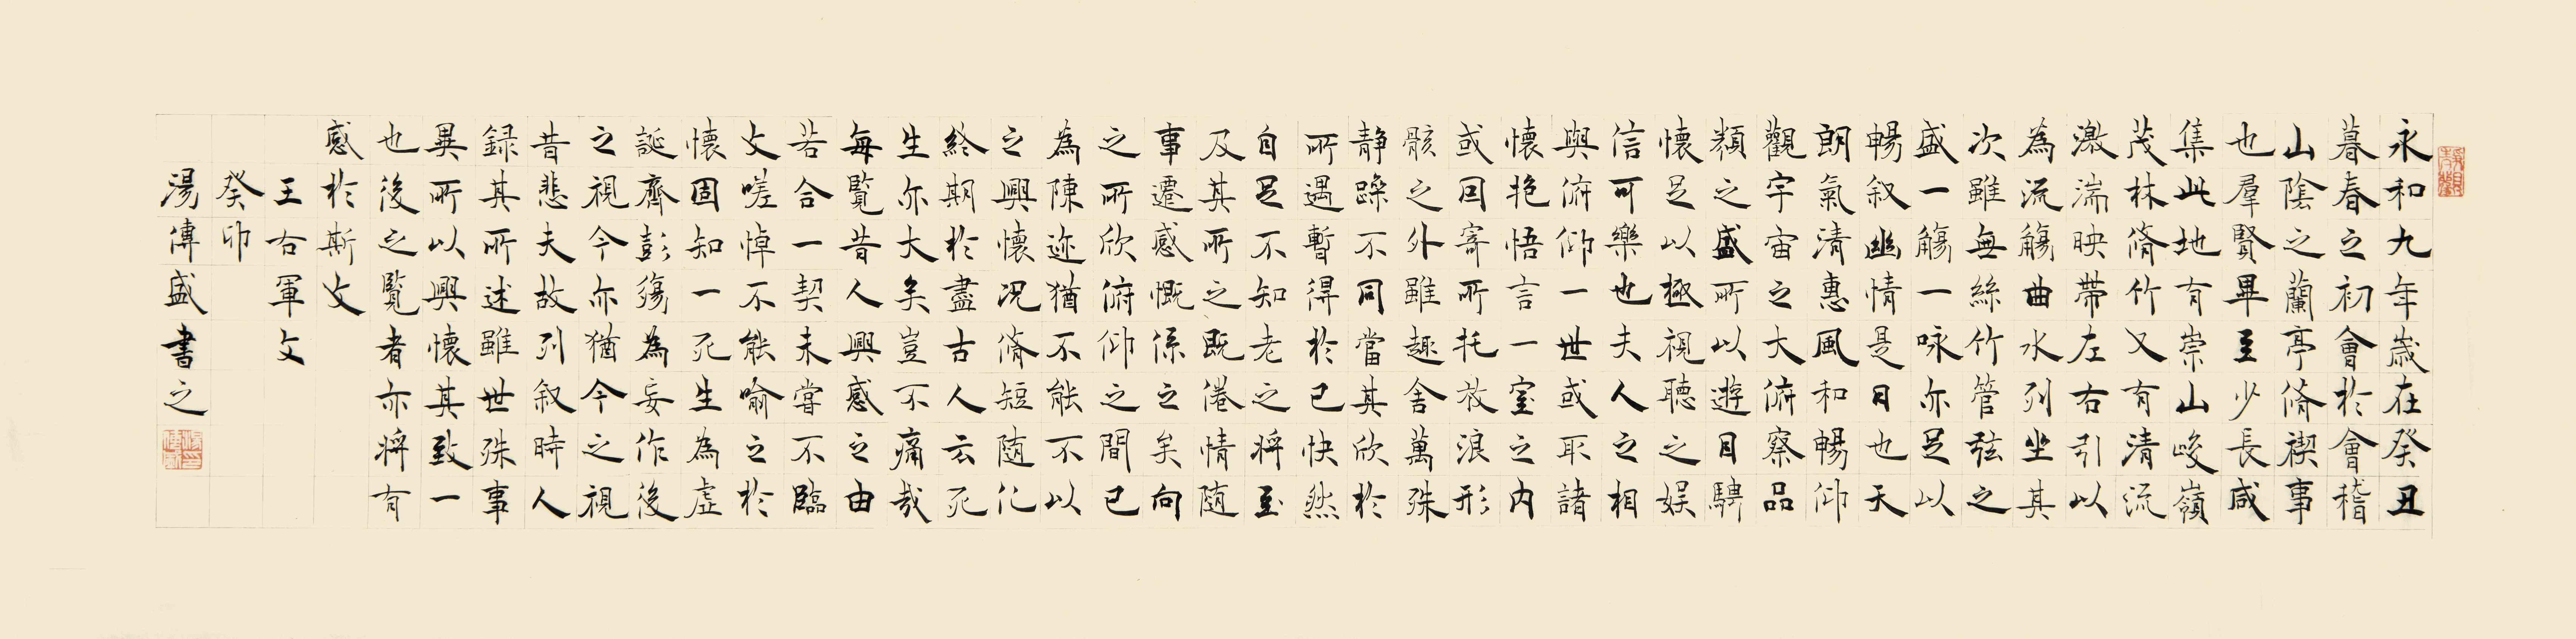 永和九年歲在癸丑
暮春之初會於會稽
山陰之蘭亭脩禊事
也羣賢畢至少長咸
集此地有崇山峻嶺
茂林脩竹又有清流
激湍映帶左右引以
為流觴曲水列坐其
次雖無絲竹管弦之
盛一觴一咏亦足以
暢叙幽情是日也天
朗氣清惠風和暢仰
觀宇宙之大俯察品
類之盛所以遊目騁
懷足以極視聽之娛
信可樂也夫人之相
與俯仰一世或取諸
懷抱悟言一室之内
或因寄所托放浪形
骸之外雖趣舍萬殊
静躁不同當其欣於
所遇暫得於己快然
自足不知老之將至
及其所之既倦情隨
事遷感慨係之矣向
之所欣俯仰之間已
為陳迹猶不能不以
之興懷况脩短隨化
終期於盡古人云死
生亦大矣豈不痛哉
每覽昔人興感之由
若合一契未嘗不臨
文嗟悼不能喻之於
懷固知一死生為虛
誕齊彭殤為妄作後
之視今亦猶今之視
昔悲夫故列叙時人
録其所述雖世殊事
異所以興懷其致一
也後之覽者亦將有
感於斯文
王右軍文
癸卯
湯傳盛書之